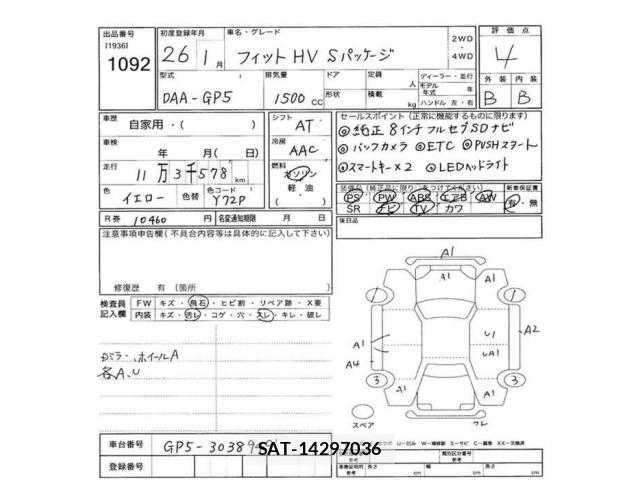 出品番号 初度登録年月 車名・グレード 2WD ・ 4WD 評価点
[1936]
1092 26 1月 フィットHV Sパッケージ 4
型式 排気量 ドア 定員 人 ディーラー・並行 外装 内装
DAA-GP5 1500 CC 形状 積載 kg モデル年式 年 ハンドル 左・右 B B
車歴 自家用・( ) シフト AT セールスポイント (正常に機能するものに限ります)
◎純正8インチフルセグSDナビ
車検 年 月( ) 冷房 AAC ◎バックカメラ ◎ETC ◎PUSHスタート
走行 11万3千578 km 燃料 ガソリン 軽油 ( ) ◎スマートキー×2 ◎LEDヘッドライト
色 イエロー 色替 色コード Y72P 装備品 (純正品に限り○をつけてください) 新車保証書
PS PW ABS エアB AW 有・無
SR ナビ TV カワ
R券 10460 円 名変通知期限 月 日 後日品
注意事項申告欄 (不具合内容等は具体的に記入して下さい)
修復歴 有 (箇所
検査員記入欄 FW キズ・飛石・ヒビ割・リペア跡・X要
内装 キズ・汚レ・コゲ・穴・スレ・キレ・破レ
カミラー、ホイールA
各A、U
A1
A1 A1
1 1
A1 U1 A2
A4 UA1
3 3
A1 A1
スペア ワレ
車台番号 GP5-3038949
SAT-14297036
登録番号
長さ cm 幅 cm 高さ cm